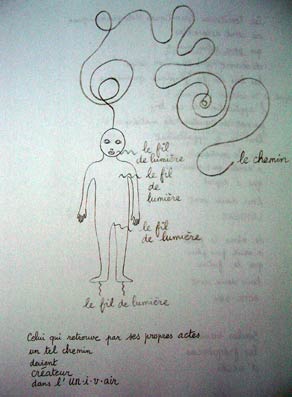 le chemin
le fil
de lumière
le fil
de
lumière
le fil
de lumière
le fil de lumière
Celui qui retrouve par ses propres actes
un tel chemin
devient
créateur
dans l'UN·i·v·air